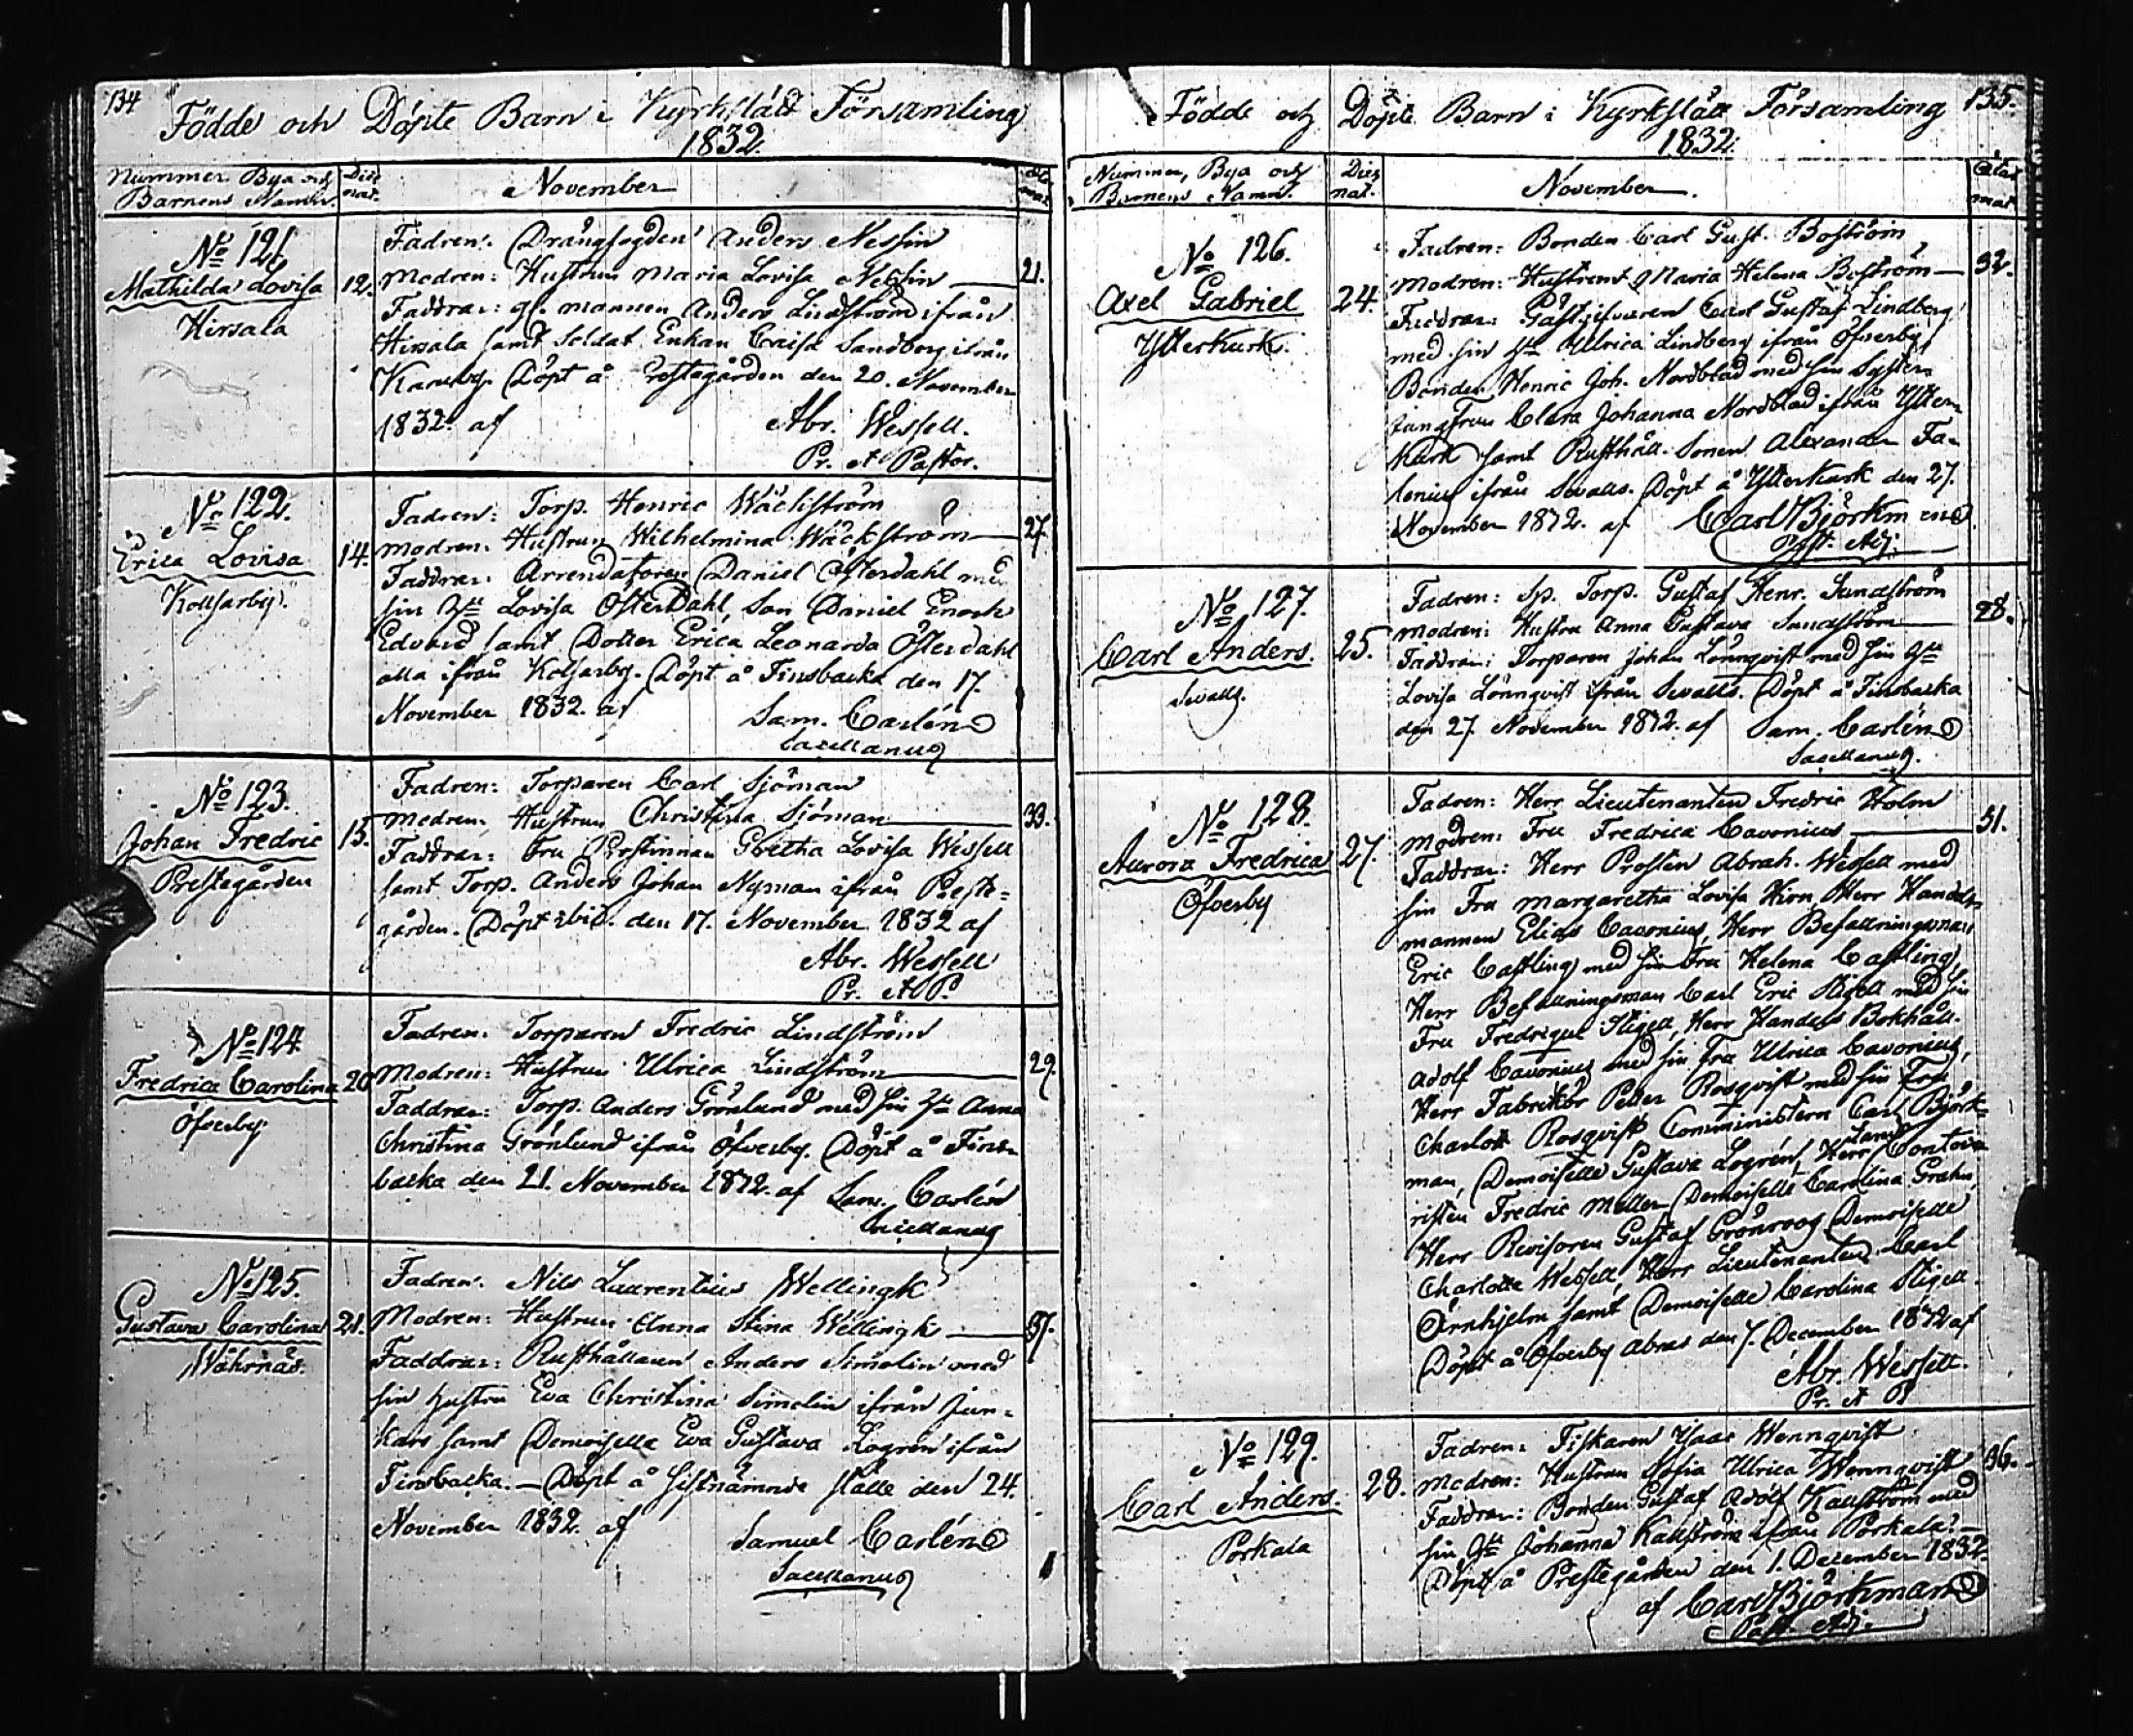 134
Födde och Döpte Barn i Kyrkslätt Församling
1832.
Nummer Bya och
Barnens Namn.
Dies
nat.
November
No 121
Mathilda Lovisa
Hirsala
12.
Fadren: Drängfogden Anders Nessin
Modren: Hustrun Maria Lovisa Nessin
21.
Faddrar: gl. mannen Anders Lindström ifrån
Hirsala samt Soldat Enkan Caisa Sandborg ifrån
Karuby. Döpt å Prestegården den 20. November
1832. af Abr. Wessell.
Pr. et Pastor.
No 122.
Erica Lovisa
Kolsarby.
14.
Fadren: Torp. Henric Wäckström
Modren: Hustrun Wilhelmina Wäckström
27.
Faddrar: Arrendatoren Daniel Österdahl med
sin Hu Lovisa Österdahl, Son Daniel Enoch
Edvard samt Dotter Erica Leonarda Österdahl
alla ifrån Kolsarby. Döpt å Finsbacka den 17.
November 1832. af Sam. Carlén
Sacellanus
No 123.
Johan Fredric
Prestegården
15.
Fadren: Torparen Carl Sjöman
Modren: Hustrun Christina Sjöman
33.
Faddrar: Fru Prostinnan Gretha Lovisa Wessell
samt Torp. Anders Johan Nyman ifrån Preste=
gården. Döpt ibid. den 17. November 1832 af
Abr. Wessell
Pr. et P.
No 124
Fredrica Carolina
Öfverby
20
Fadren: Torparen Fredric Lindström
Modren: Hustrun Ulrica Lindström
29.
Faddrar: Torp. Anders Grönlund med sin Hu Anna
Christina Grönlund ifrån Öfverby. Döpt å Fins=
backa den 21. November 1832. af Sam. Carlén
Sacellanus
No 125.
Gustava Carolina
Währnäs.
21.
Fadren: Nils Laurentius Wellingk
Modren: Hustrun Anna Stina Wellingk
37.
Faddrar: Rusthållaren Anders Simolin med
sin Hustru Eva Christina Simolin ifrån Jun=
kars samt Demoiselle Eva Gustava Logrén ifrån
Finsbacka. Döpt å sistnämnde ställe den 24.
November 1832. af Samuel Carlén
Sacellanus
135.
Födde och Döpte Barn i Kyrkslätt Församling
1832.
Nummer, Bya och
Barnens Namn.
Dies
nat.
November.
Ætas
mat.
No 126.
Axel Gabriel
Ytterkurk.
24.
Fadren: Bonden Carl Gust. Boström
Modren: Hustrun Maria Helena Boström
32.
Faddrar: Gästgifvaren Carl Gustaf Lindberg
med sin Hu Ulrica Lindberg ifrån Öfverby,
Bonden Henric Joh. Nordblad med sin Syster
Jungfrun Clara Johanna Nordblad ifrån Ytter=
kurk samt Rusthåll. Sonen Alexander Fa=
lenius ifrån Svalls. Döpt å Ytterkurk den 27.
November 1832. af Carl Björkman
Past. Adj.
No 127.
Carl Anders.
Svalls.
25.
Fadren: Sp. Torp. Gustaf Henr. Sundström
Modren: Hustru Anna Gustava Sundström
28.
Faddrar: Torparen Johan Lönnqvist med sin Hu
Lovisa Lönnqvist ifrån Svalls. Döpt å Finsbacka
den 27. November 1832. af Sam. Carlén
Sacellanus.
No 128.
Aurora Fredrica
Öfverby
27.
Fadren: Herr Lieutenanten Fredric Holm
Modren: Fru Fredrica Cavonius
31.
Faddrar: Herr Prosten Abrah. Wessell med
sin Fru Margaretha Lovisa Hirn, Herr Handels
mannen Elias Cavonius, Herr Befallningsman
Eric Castling med sin Fru Helena Castling,
Herr Befallningsman Carl Eric Stigell med sin
Fru Fredrique Stigell, Herr Handels Bokhåll.
Adolf Cavonius med sin Fru Ulrica Cavonius,
Herr Fabrikör Petter Rosqvist med sin Fru
Charlott Rosqvist Comministern Carl Björk=
man, Demoiselle Gustava Logrén, Herr Lands Conto
risten Fredric Meller Demoiselle Carolina Grahn,
Herr Revisoren Gustaf Grönroos Demoiselle
Charlotte Wessell, Herr Lieutenanten Carl
Örnhjelm samt Demoiselle Carolina Stigell.
Döpt å Öfverby den 7. December 1832 af
Abr. Wessell.
Pr. et P
No 129.
Carl Anders.
Porkala
28.
Fadren: Fiskaren Isaac Wennqvist
Modren: Hustrun Sofia Ulrica Wennqvist
36.
Faddrar: Bonden Gustaf Adolf Kallström med
sin Hu Johanna Kallström ifrån Porkala.
Döpt å Prestegården den 1. December 1832.
af Carl Björkman
Past. Adj.